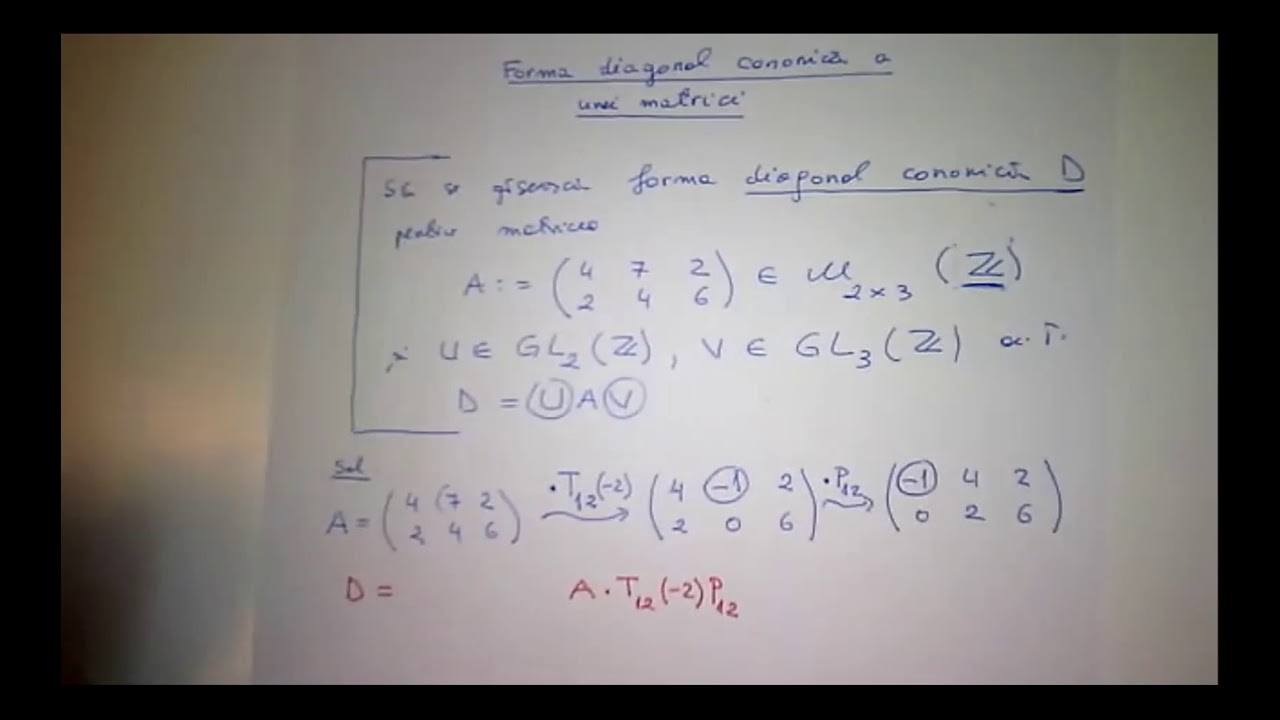 Forma diagonal canonică a
unei matrici
Să se găsească forma diagonal canonică D
pentru matricea
A := ( 4 7 2 ; 2 4 6 ) ∈ M_{2×3} (ℤ)
U ∈ GL_2(ℤ), V ∈ GL_3(ℤ) a.î.
D = U A V
Sol
A = ( 4 7 2 ; 2 4 6 ) ·T_{12}(-2) → ( 4 -1 2 ; 2 0 6 ) ·P_{12} → ( -1 4 2 ; 0 2 6 )
D = A · T_{12}(-2) P_{12}